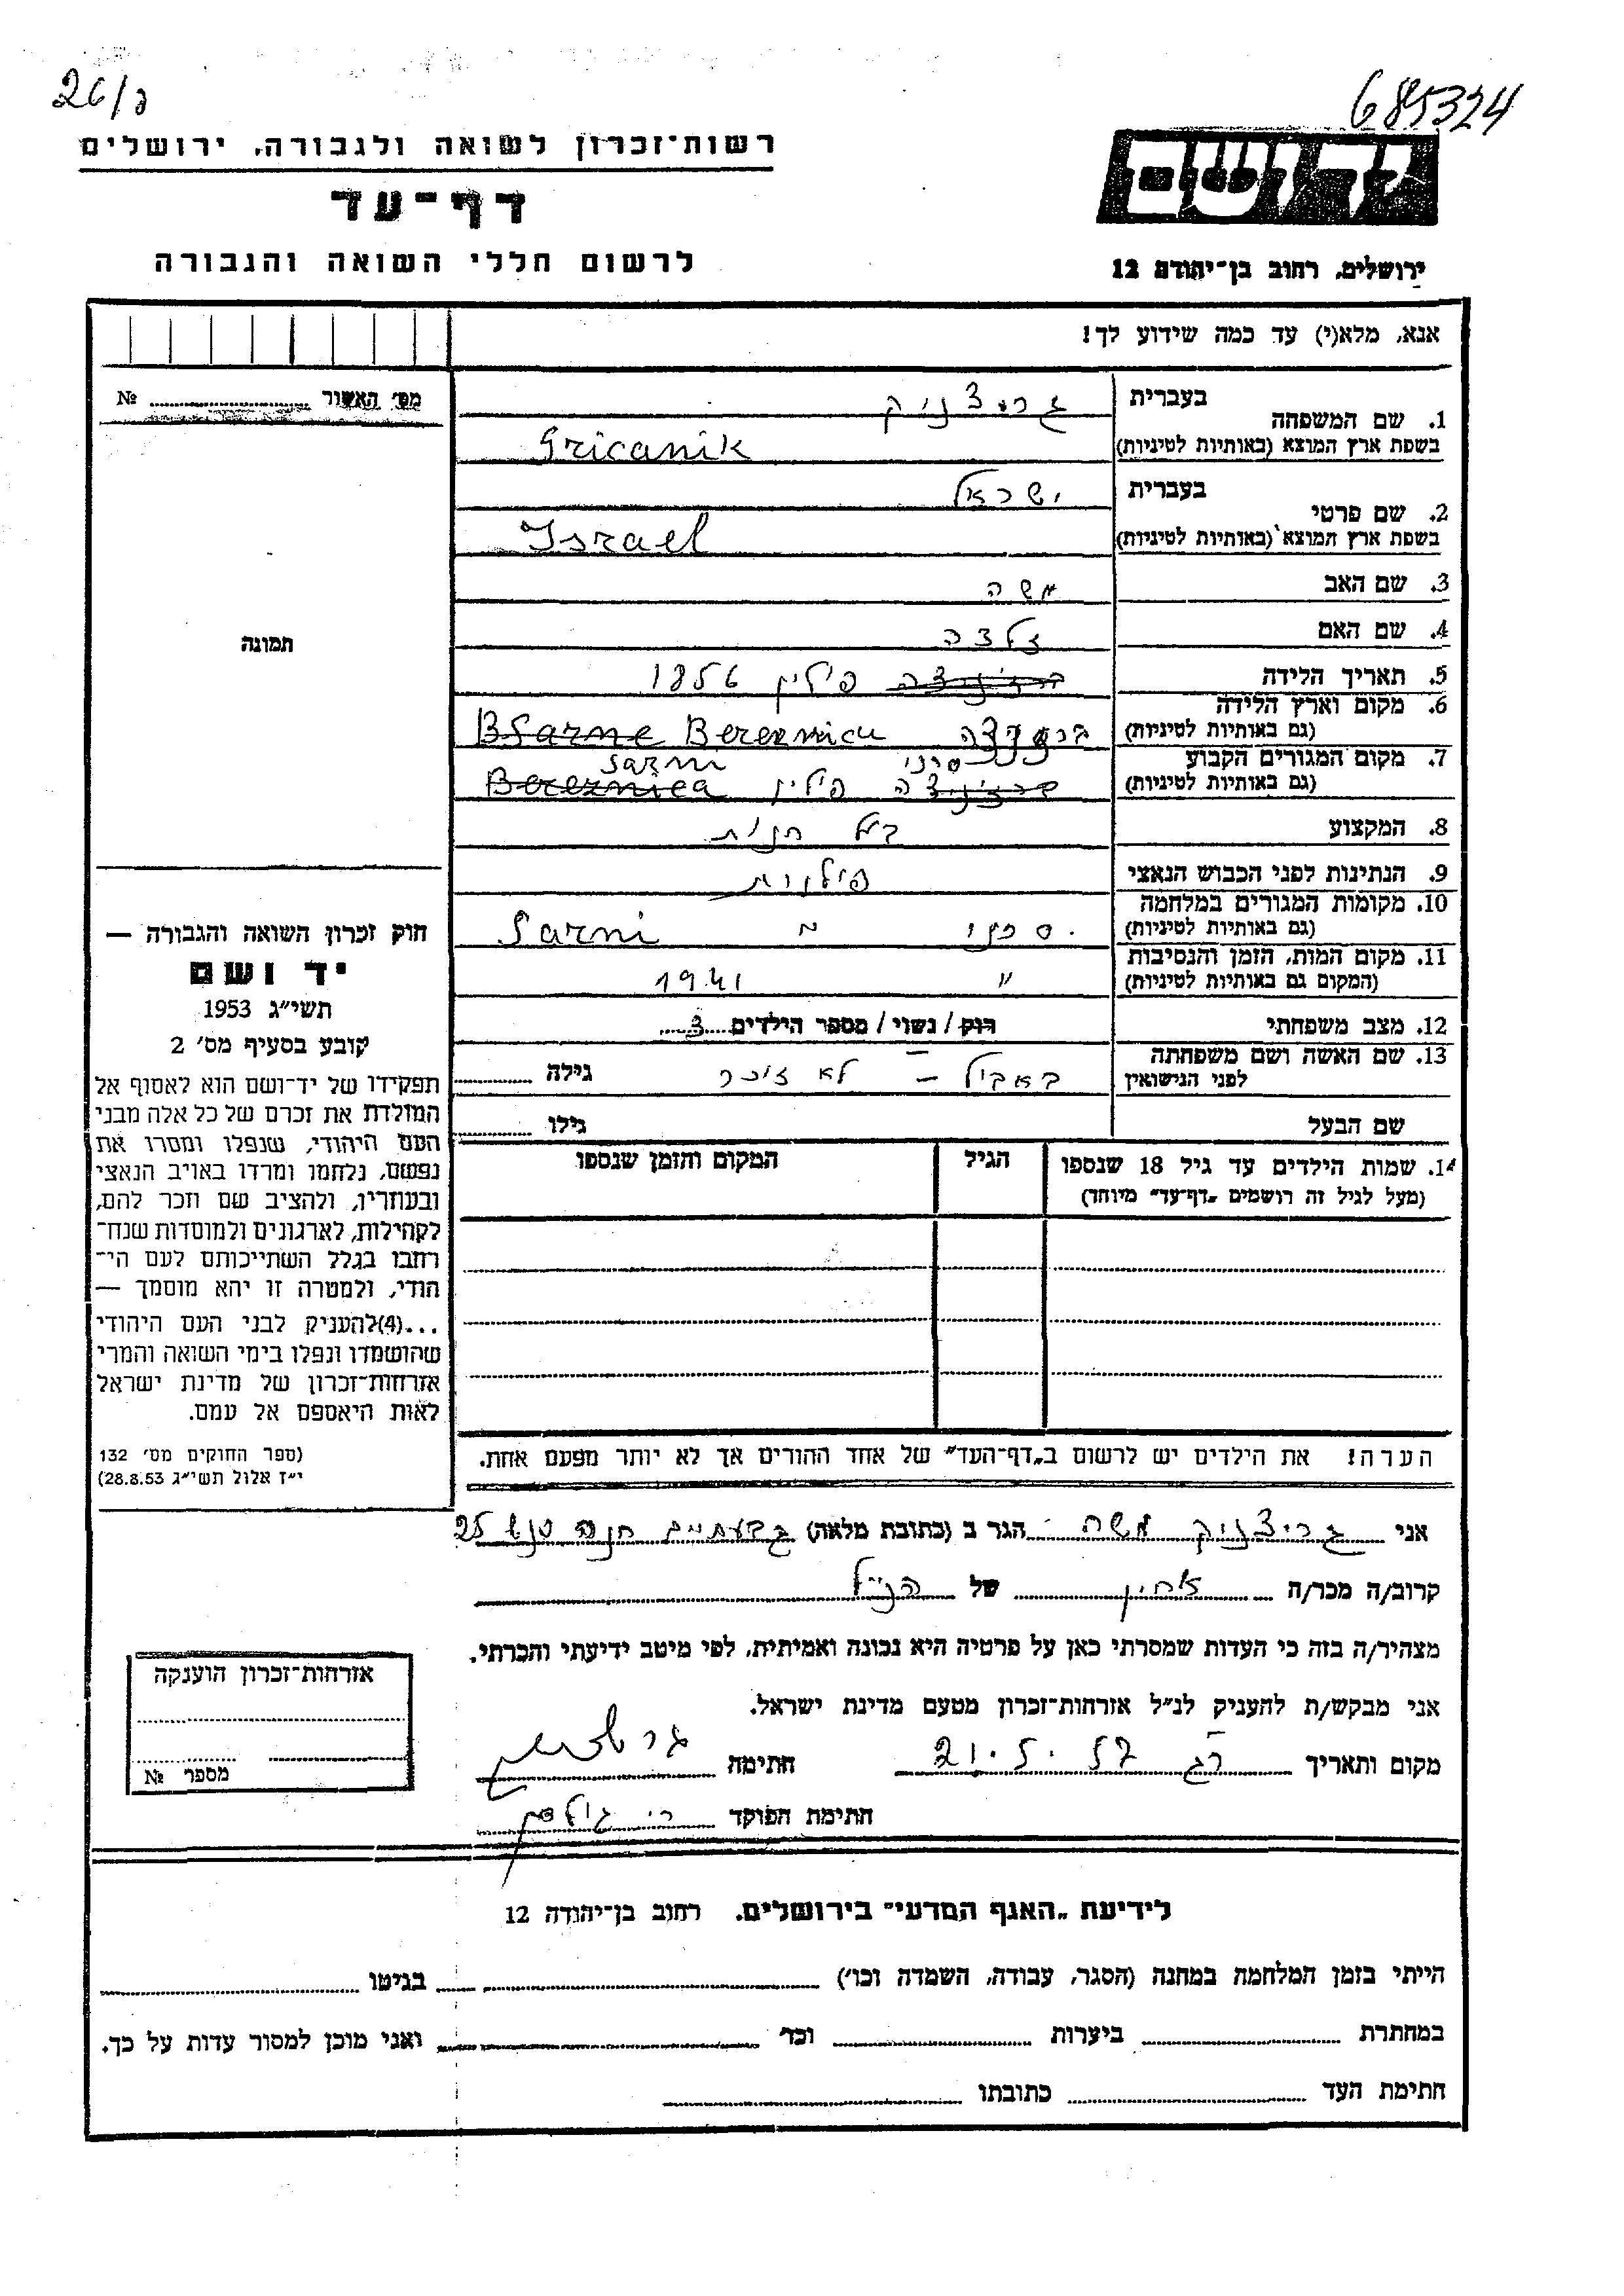 26/ג
685324
רשות־זכרון לשואה ולגבורה, ירושלים
דף־עד
לרשום חללי השואה והגבורה
ירושלים, רחוב בן־יהודה 12
אנא, מלא(י) עד כמה שידוע לך!
מס׳ האשור № 
1. שם המשפחה
בעברית גריצניק
בשפת ארץ המוצא (באותיות לטיניות) Gricanik
2. שם פרטי
בעברית ישראל
בשפת ארץ המוצא (באותיות לטיניות) Israel
3. שם האב משה
4. שם האם זלדה
5. תאריך הלידה פולין 1856
6. מקום וארץ הלידה
(גם באותיות לטיניות)
Bsarne
7. מקום המגורים הקבוע
(גם באותיות לטיניות) סרני Sarni
פולין Bereznica
8. המקצוע בעל חנות
9. הנתינות לפני הכבוש הנאצי פולנית
10. מקומות המגורים במלחמה
(גם באותיות לטיניות) סרני Sarni
11. מקום המות, הזמן והנסיבות
(המקום גם באותיות לטיניות) " 1941
12. מצב משפחתי רוק / נשוי / מספר הילדים 3
13. שם האשה ושם משפחתה
לפני הנישואין לא זוכר גילה
שם הבעל גילו
14. שמות הילדים עד גיל 18 שנספו
(מעל לגיל זה רושמים „דף־עד" מיוחד)
הגיל
המקום והזמן שנספו
תמונה
חוק זכרון השואה והגבורה —
יד ושם
תשי״ג 1953
קובע בסעיף מס׳ 2
תפקידו של יד־ושם הוא לאסוף אל
המולדת את זכרם של כל אלה מבני
העם היהודי, שנפלו ומסרו את
נפשם, נלחמו ומרדו באויב הנאצי
ובעוזריו, ולהציב שם וזכר להם,
לקהילות, לארגונים ולמוסדות שנח־
רחבו בגלל השתייכותם לעם הי־
הודי, ולמטרה זו יהא מוסמך —
...(4)להעניק לבני העם היהודי
שהושמדו ונפלו בימי השואה והמרי
אזרחות־זכרון של מדינת ישראל
לאות היאספם אל עמם.
(ספר החוקים מס׳ 132
י״ז אלול תשי״ג 28.8.53)
הערה! את הילדים יש לרשום ב„דף־העד" של אחד ההורים אך לא יותר מפעם אחת.
אני גריצניק משה הגר ב (כתובת מלאה) גבעתיים חנה סנש 25
קרוב/ה מכר/ה אחין של הנ״ל
מצהיר/ה בזה כי העדות שמסרתי כאן על פרטיה היא נכונה ואמיתית, לפי מיטב ידיעתי והכרתי.
אני מבקש/ת להעניק לנ״ל אזרחות־זכרון מטעם מדינת ישראל.
מקום ותאריך רג 21.5.57 חתימה
חתימת הפוקד
אזרחות־זכרון הוענקה
מספר №
לידיעת „האגף המדעי" בירושלים. רחוב בן־יהודה 12
הייתי בזמן המלחמה במחנה (הסגר, עבודה, השמדה וכו׳) בגיטו
במחתרת ביערות וכד׳ ואני מוכן למסור עדות על כך.
חתימת העד כתובתו